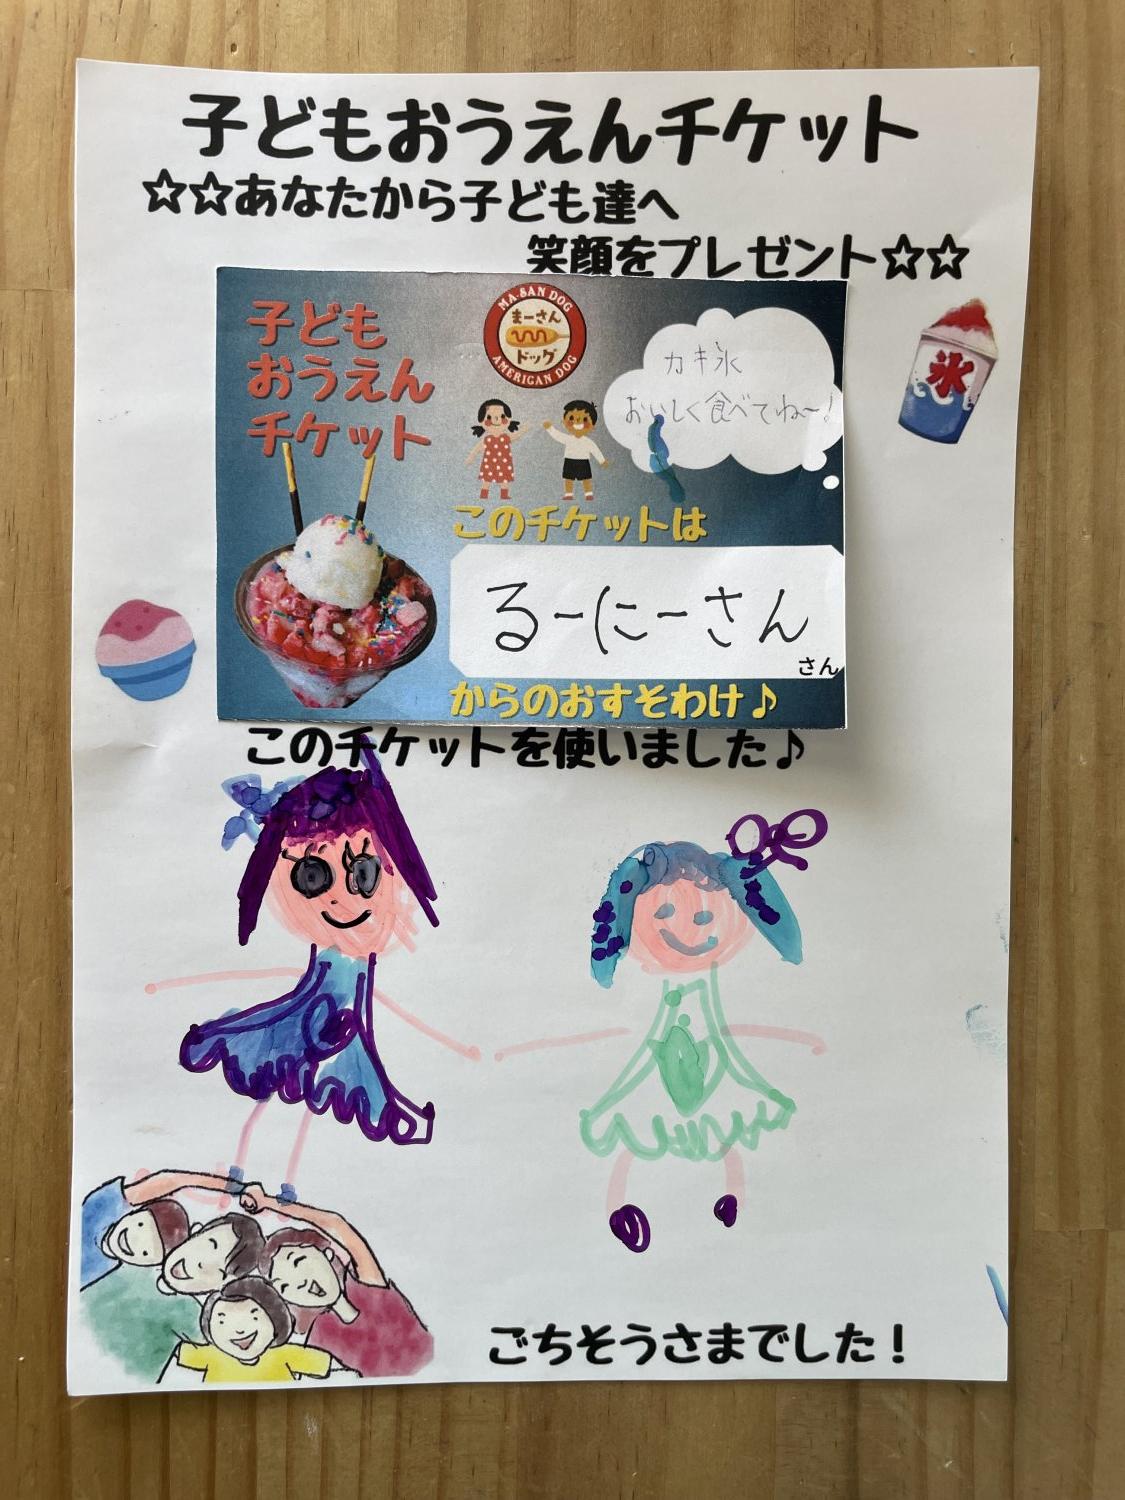 子どもおうえんチケット
☆☆あなたから子ども達へ
笑顔をプレゼント☆☆
子ども
おうえん
チケット
MA-SAN DOG
まーさん
ドッグ
AMERICAN DOG
カキ氷
おいしく食べてね〜!
氷
このチケットは
るーにーさん
さん
からのおすそわけ♪
このチケットを使いました♪
ごちそうさまでした!